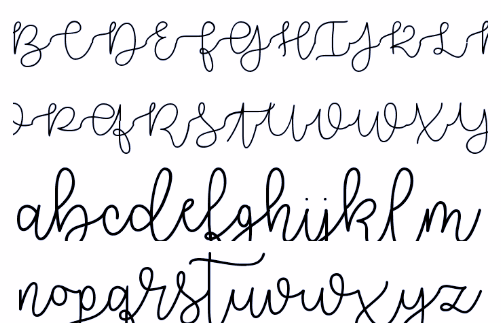 BCDEFGHIJKL
PQRSTUVWXY
abcdefghijklm
nopqrstuvwxyz